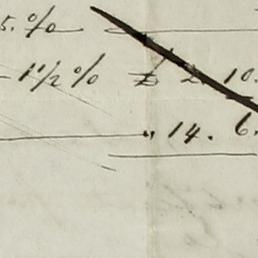 5. %
1 1/2 % £ 2. 10.
" 14. 6.